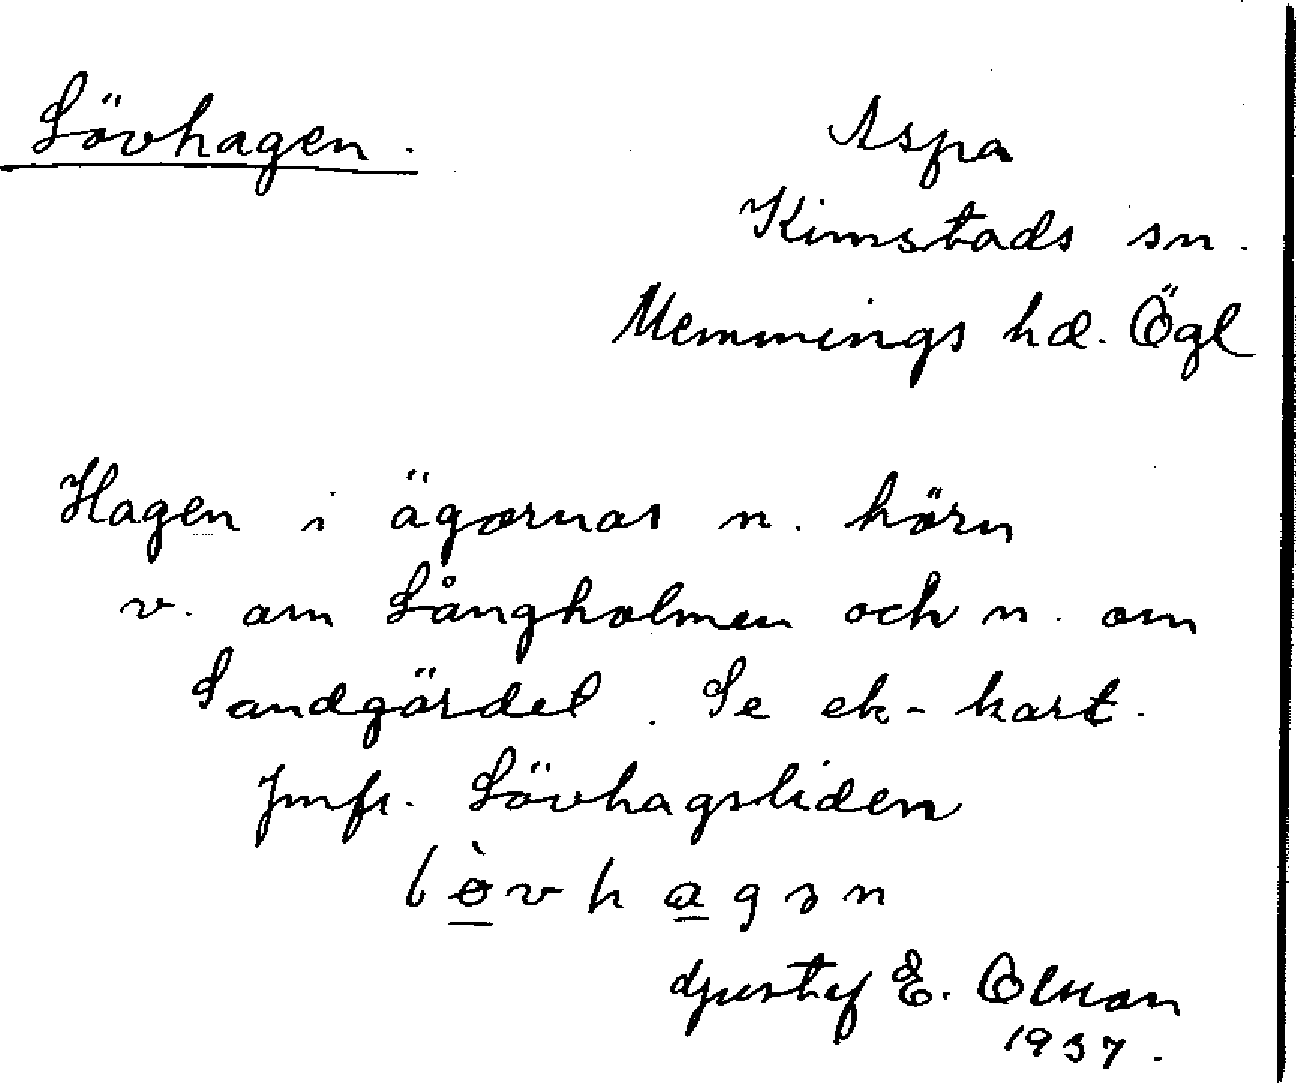 Lövhagen.
Aspa
Kimstads sn.
Memmings hd. Ögl
Hagen i ägornas n. hörn
v. om Långholmen och n. om
Sandgärdet. Se ek-kart.
Jmfr. Lövhagsliden
lòvhagɜn
Gustaf E. Olsson
1937.